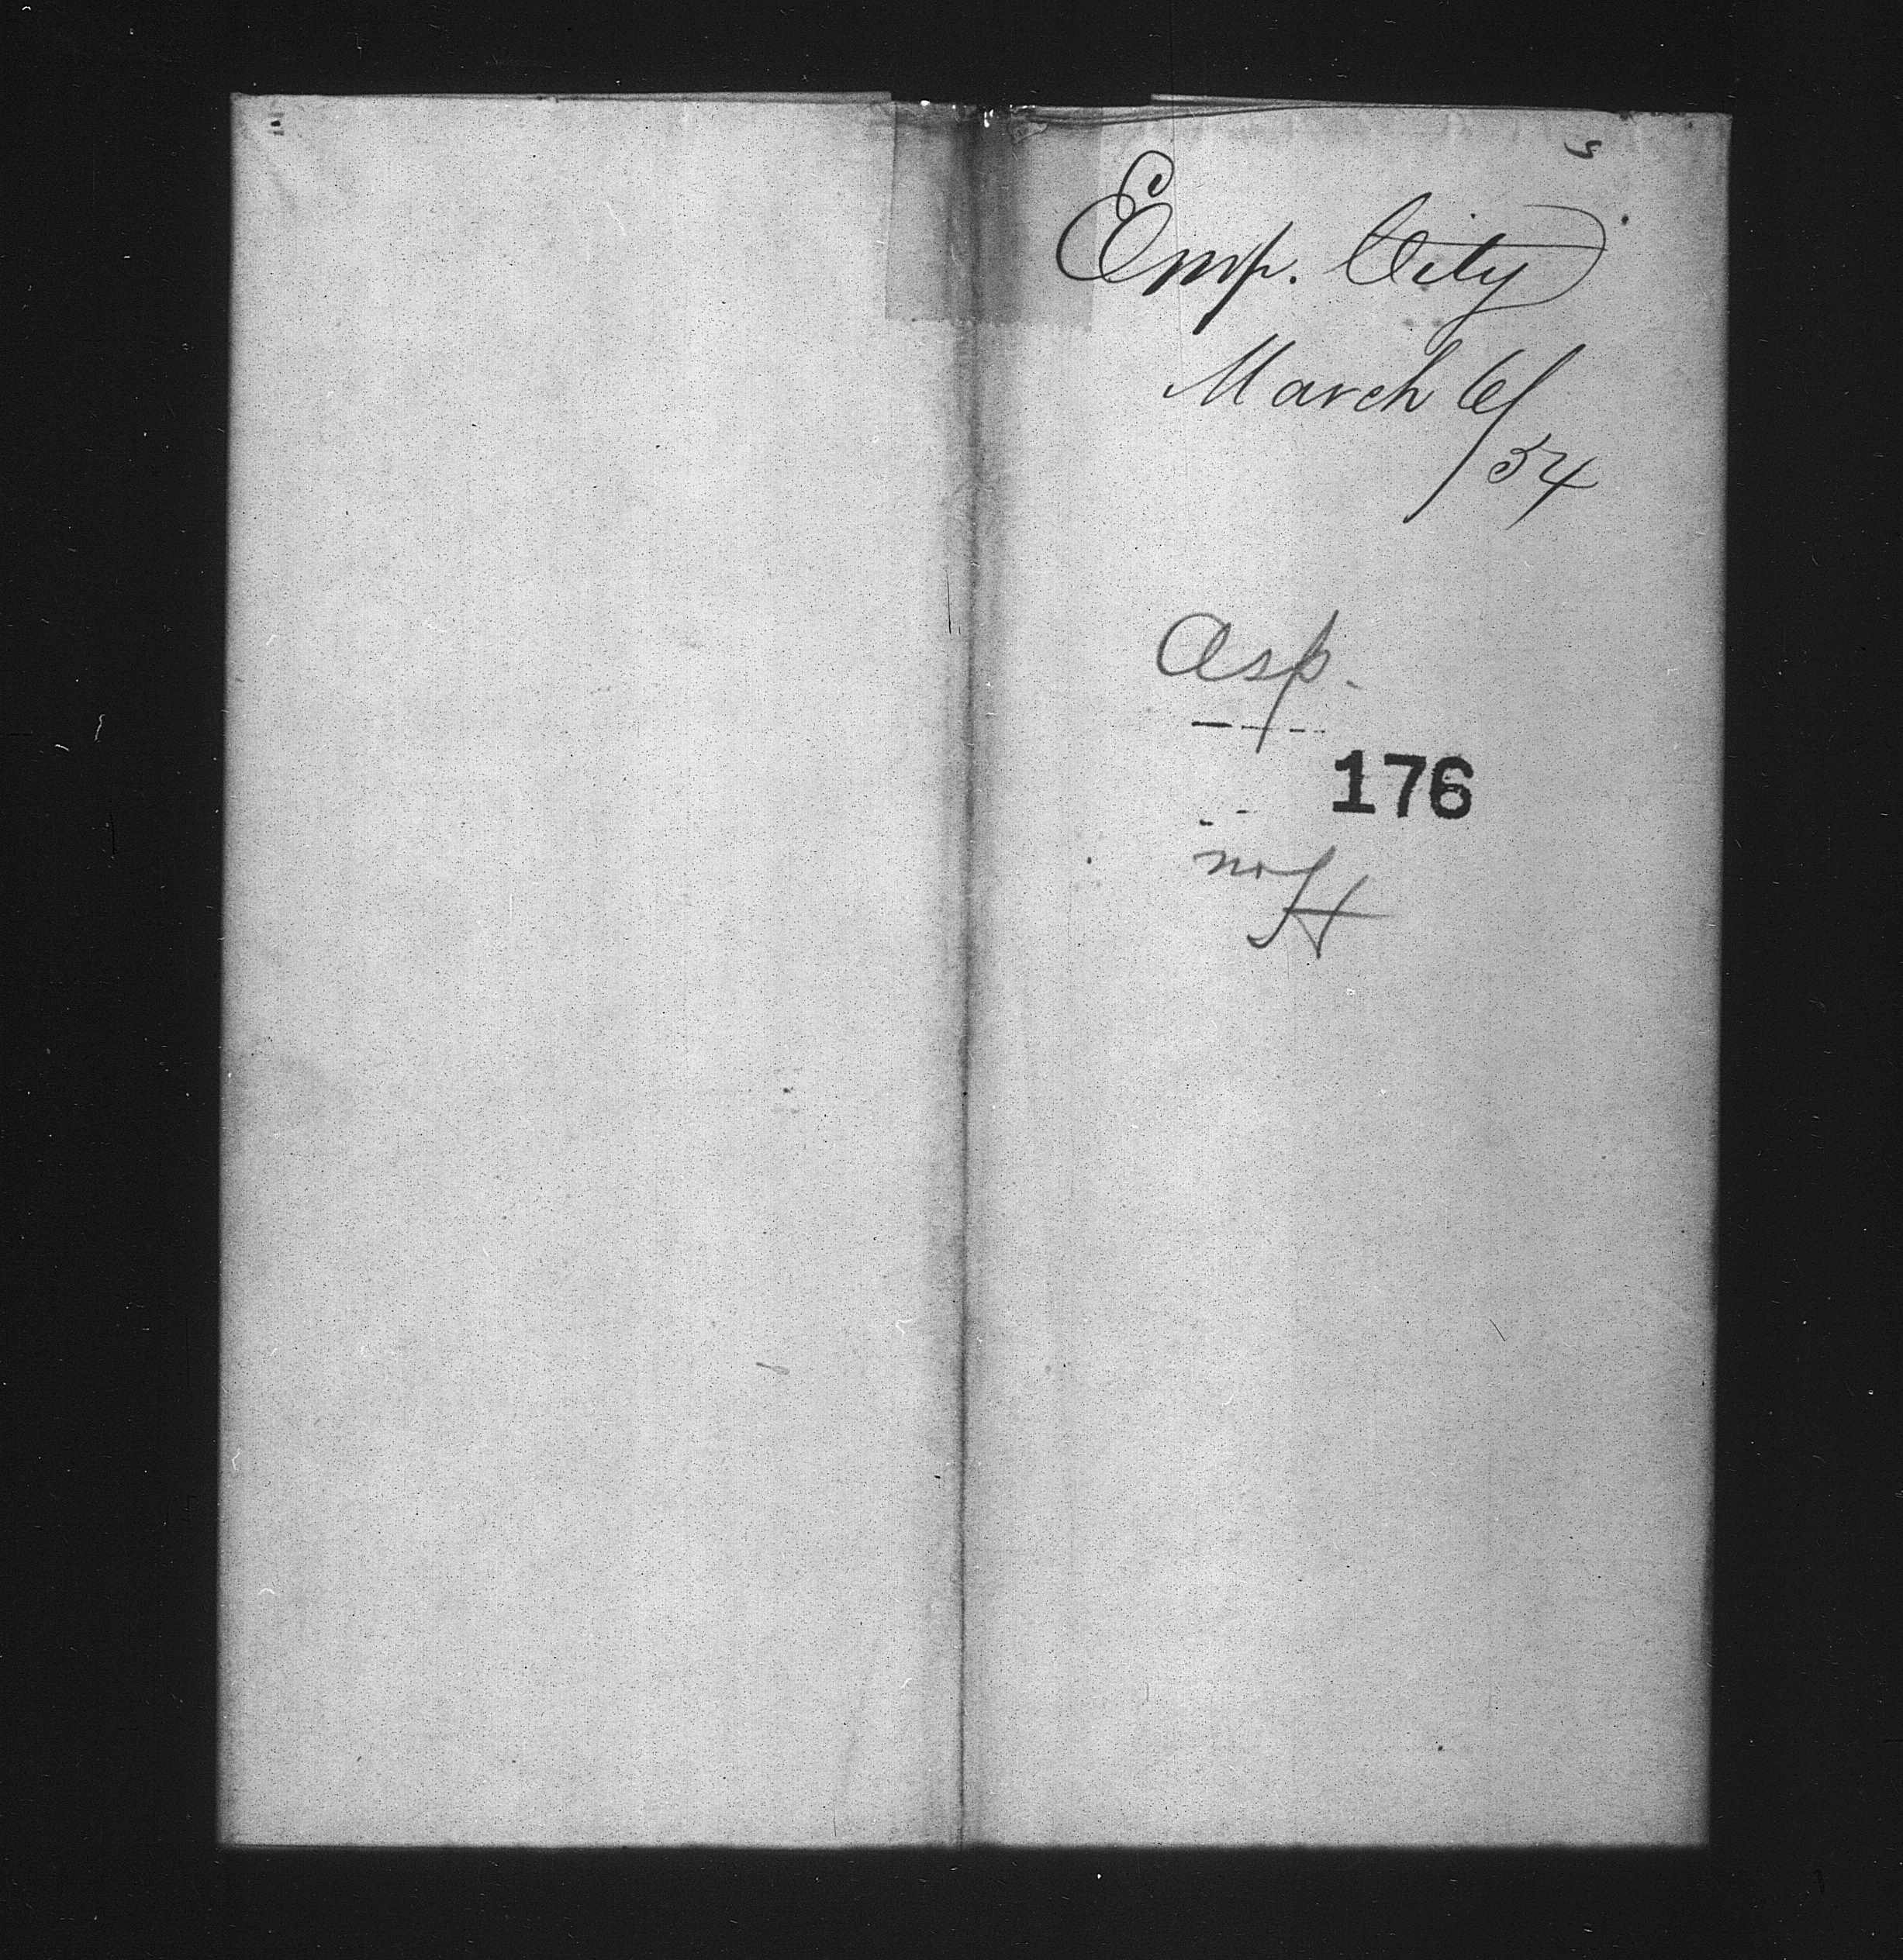 Emp. City
March 6/
54
Asp.
176